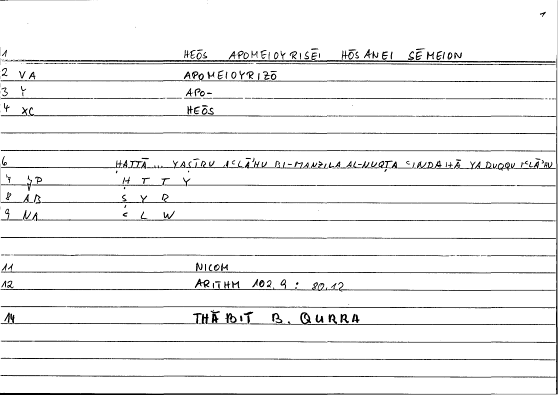 1
1 HEŌS APOMEIOYRISĒI HŌSANEI SĒMEION
2 VA APOMEIOYRIZŌ
3 Y APO-
4 XC HEŌS
6 ḤATTĀ ... YAṢĪRU AʿLĀHU BI-MANZILA AL-NUQṬA ʿINDAHĀ YADUQQU
7 JP Ḥ T T Y
8 AB Ṣ Y R
9 NA ʿ L W
11 NICOM
12 ARITHM 102.9 : 80.12
14 THĀBIT B. QURRA